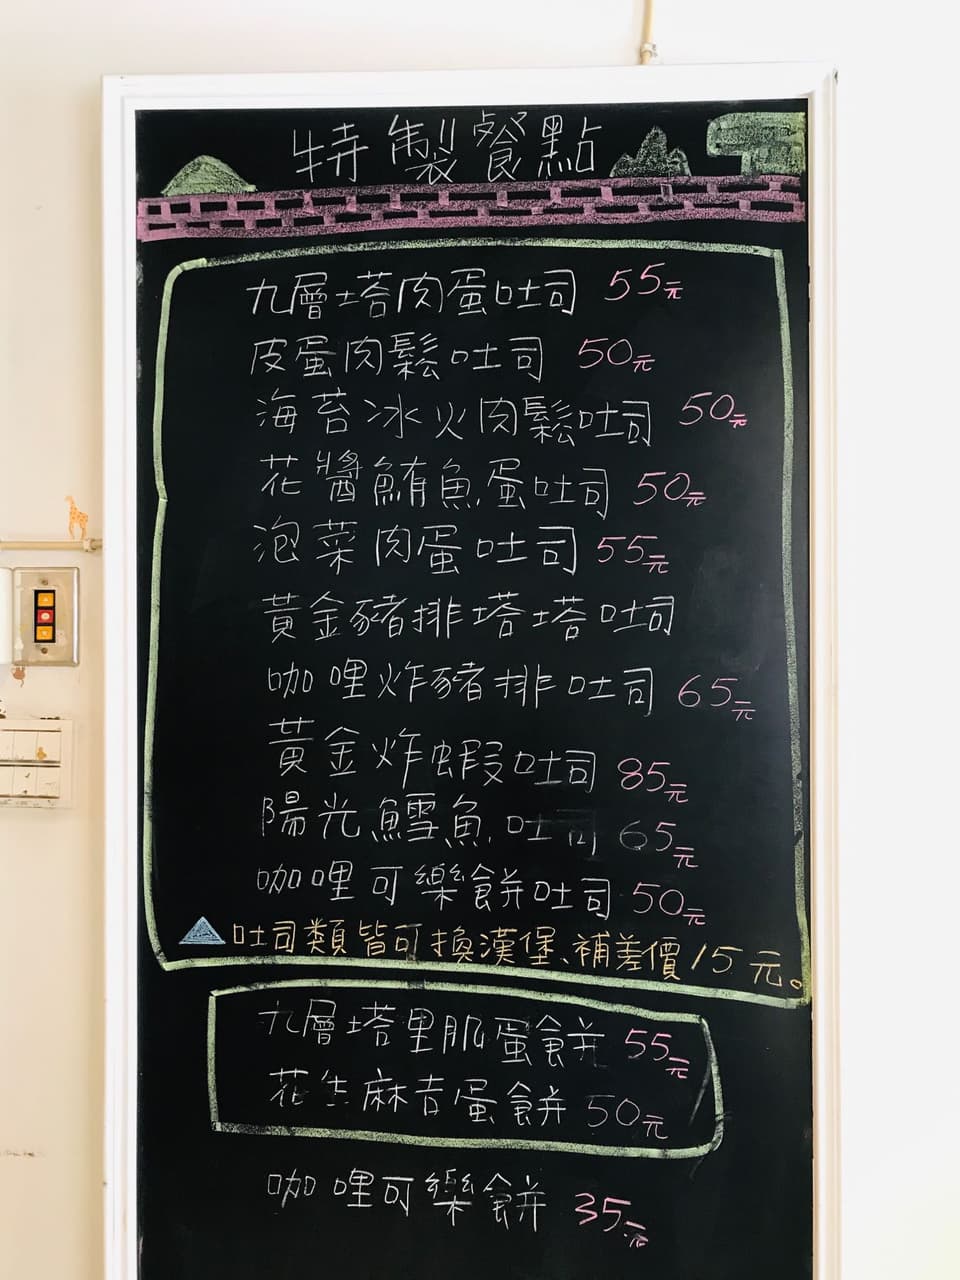 特製餐點
九層塔肉蛋吐司 55元
皮蛋肉鬆吐司 50元
海苔冰火肉鬆吐司 50元
花醬鮪魚蛋吐司 50元
泡菜肉蛋吐司 55元
黃金豬排塔塔吐司
咖哩炸豬排吐司 65元
黃金炸蝦吐司 85元
陽光鱈魚吐司 65元
咖哩可樂餅吐司 50元
吐司類皆可換漢堡、補差價15元。
九層塔里肌蛋餅 55元
花生麻吉蛋餅 50元
咖哩可樂餅 35元